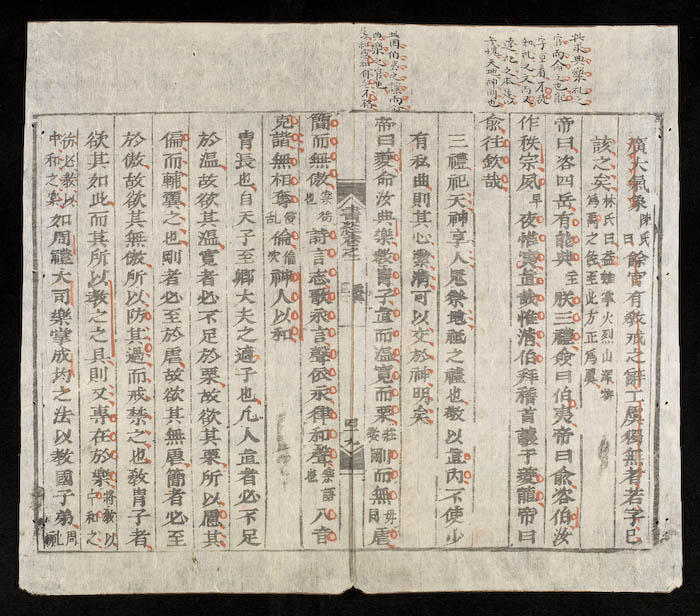 此承典樂礼之
官而命之也
無愧天地神明也
廣大氣象陳氏曰餘官有教戒之辭工虞獨無者若字已
該之矣林氏曰益雖掌火烈山澤
爲虞之後至此方正爲虞
帝曰咨四岳有能典主朕三禮僉曰伯夷帝曰俞咨伯汝
作秩宗夙早夜惟寅直哉惟清伯拜稽首讓于夔龍帝曰
俞往欽哉
三禮祀天神享人鬼祭地祗之禮也敬以直內不使少
有私曲則其心潔清可以交於神明矣
帝曰夔命汝典樂教冑子直而溫寬而栗莊敬剛而無毋同虐
書經卷之
簡而無傲樂也詩言志歌永言聲依永律和聲八音
克諧無相奪亂倫神人以和
冑長也自天子至卿大夫之適子也凡人直者必不足
於溫故欲其溫寬者必不足於栗故欲其栗所以慮其
偏而輔翼之也剛者必至於虐故欲其無虐簡者必至
於傲故欲其無傲所以防其過而戒禁之也教冑子者
欲其如此而其所以教之之具則又專在於樂將教以中和之
中和之業如周禮大司樂掌成均之法以教國子弟周礼